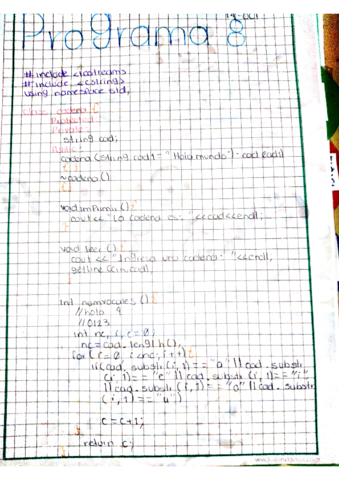 14-oct
Programa 8
#include <iostream>
#include <cstring>
using namespace std;
class cadena {
Protected:
Private:
string cad;
Public:
cadena (string cad1 = "Hola mundo"): cad(cad1)
{ }
~cadena ()
{ }
void imprimir () {
cout << "La cadena es: " << cad << endl;
void leer () {
cout << "Ingresa una cadena: " << endl;
getline (cin, cad);
int numvocales () {
//hola 9
//0123
int nc, i, c = 0;
nc = cad.length();
for (i = 0; i < nc; i++)
if (cad.substr (i, 1) == "a" || cad.substr
(i, 1) == "e" || cad.substr (i, 1) == "i"
|| cad.substr (i, 1) == "o" || cad.substr
(i, 1) == "u")
c = c + 1;
return c;